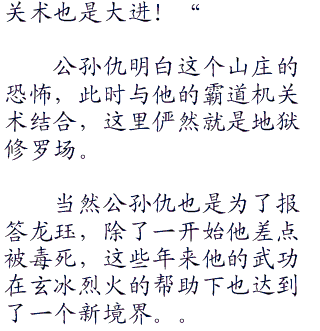 关术也是大进！“
公孙仇明白这个山庄的
恐怖，此时与他的霸道机关
术结合，这里俨然就是地狱
修罗场。
当然公孙仇也是为了报
答龙珏，除了一开始他差点
被毒死，这些年来他的武功
在玄冰烈火的帮助下也达到
了一个新境界。。